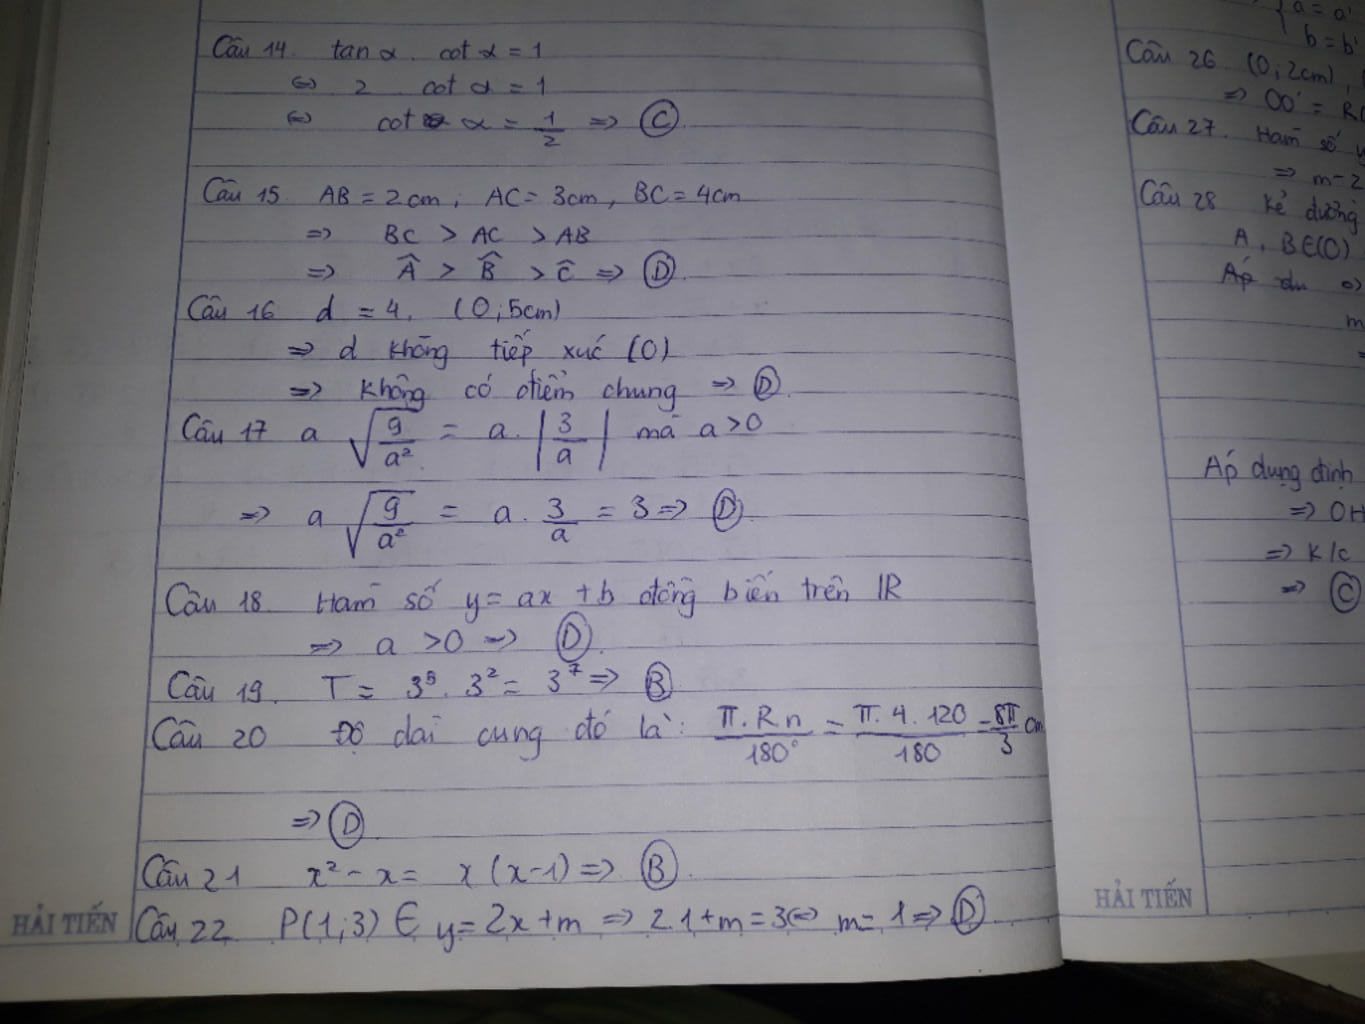 Câu 14. tan α . cot α = 1
⇔ 2 cot α = 1
⇔ cot α = 1/2 ⇒ C
Câu 15 AB = 2cm; AC = 3cm, BC = 4cm
⇒ BC > AC > AB
⇒ Â > B̂ > Ĉ ⇒ D
Câu 16 d = 4, (O; 5cm)
⇒ d không tiếp xúc (O)
⇒ Không có điểm chung ⇒ D
Câu 17 a √(9/a²) = a. |3/a| mà a > 0
⇒ a √(9/a²) = a . 3/a = 3 ⇒ D
Câu 18 Hàm số y = ax + b đồng biến trên IR
⇒ a > 0 ⇒ D
Câu 19. T = 3⁵. 3² = 3⁷ ⇒ B
Câu 20 Độ dài cung đó là: π.Rn/180° = π.4.120/180 = 8π/3 cm
⇒ D
Câu 21 x² - x = x(x-1) ⇒ B
Câu 22 P(1;3) ∈ y = 2x + m ⇒ 2.1 + m = 3 ⇔ m = 1 ⇒ D
HẢI TIẾN
a = a'
b = b'
Câu 26 (O; 2cm),
⇒ OO' = R
Câu 27. Hàm số
⇒ m - 2
Câu 28 Kẻ đường
A, B ∈ (O)
Áp
m
Áp dụng định
⇒ OH
⇒ K/c
⇒ C
HẢI TIẾN